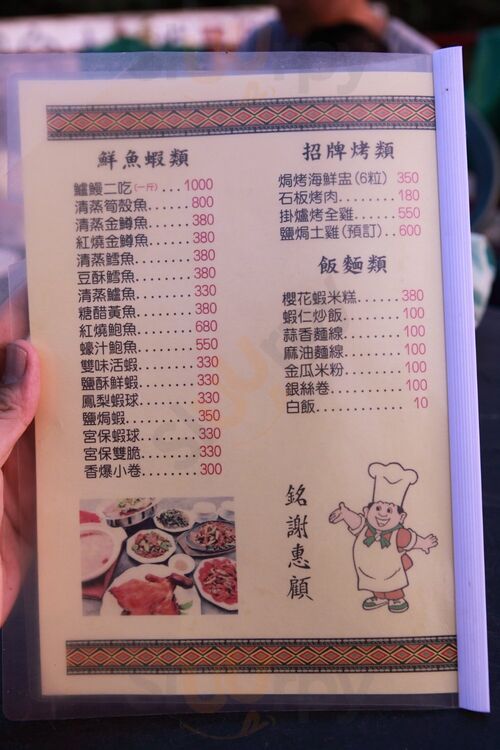 鮮魚蝦類
鱸鰻二吃(一斤)...1000
清蒸筍殼魚......800
清蒸金鱒魚......380
紅燒金鱒魚......380
清蒸鱈魚........380
豆酥鱈魚........380
清蒸鱸魚........330
糖醋黃魚........380
紅燒鮑魚........680
蠔汁鮑魚........550
雙味活蝦........330
鹽酥鮮蝦........330
鳳梨蝦球........330
鹽焗蝦..........350
宮保蝦球........330
宮保雙脆........330
香爆小卷........300
招牌烤類
焗烤海鮮盅(6粒) 350
石板烤肉........180
掛爐烤全雞......550
鹽焗土雞(預訂)..600
飯麵類
櫻花蝦米糕......380
蝦仁炒飯........100
蒜香麵線........100
麻油麵線........100
金瓜米粉........100
銀絲卷..........100
白飯............ 10
銘謝惠顧